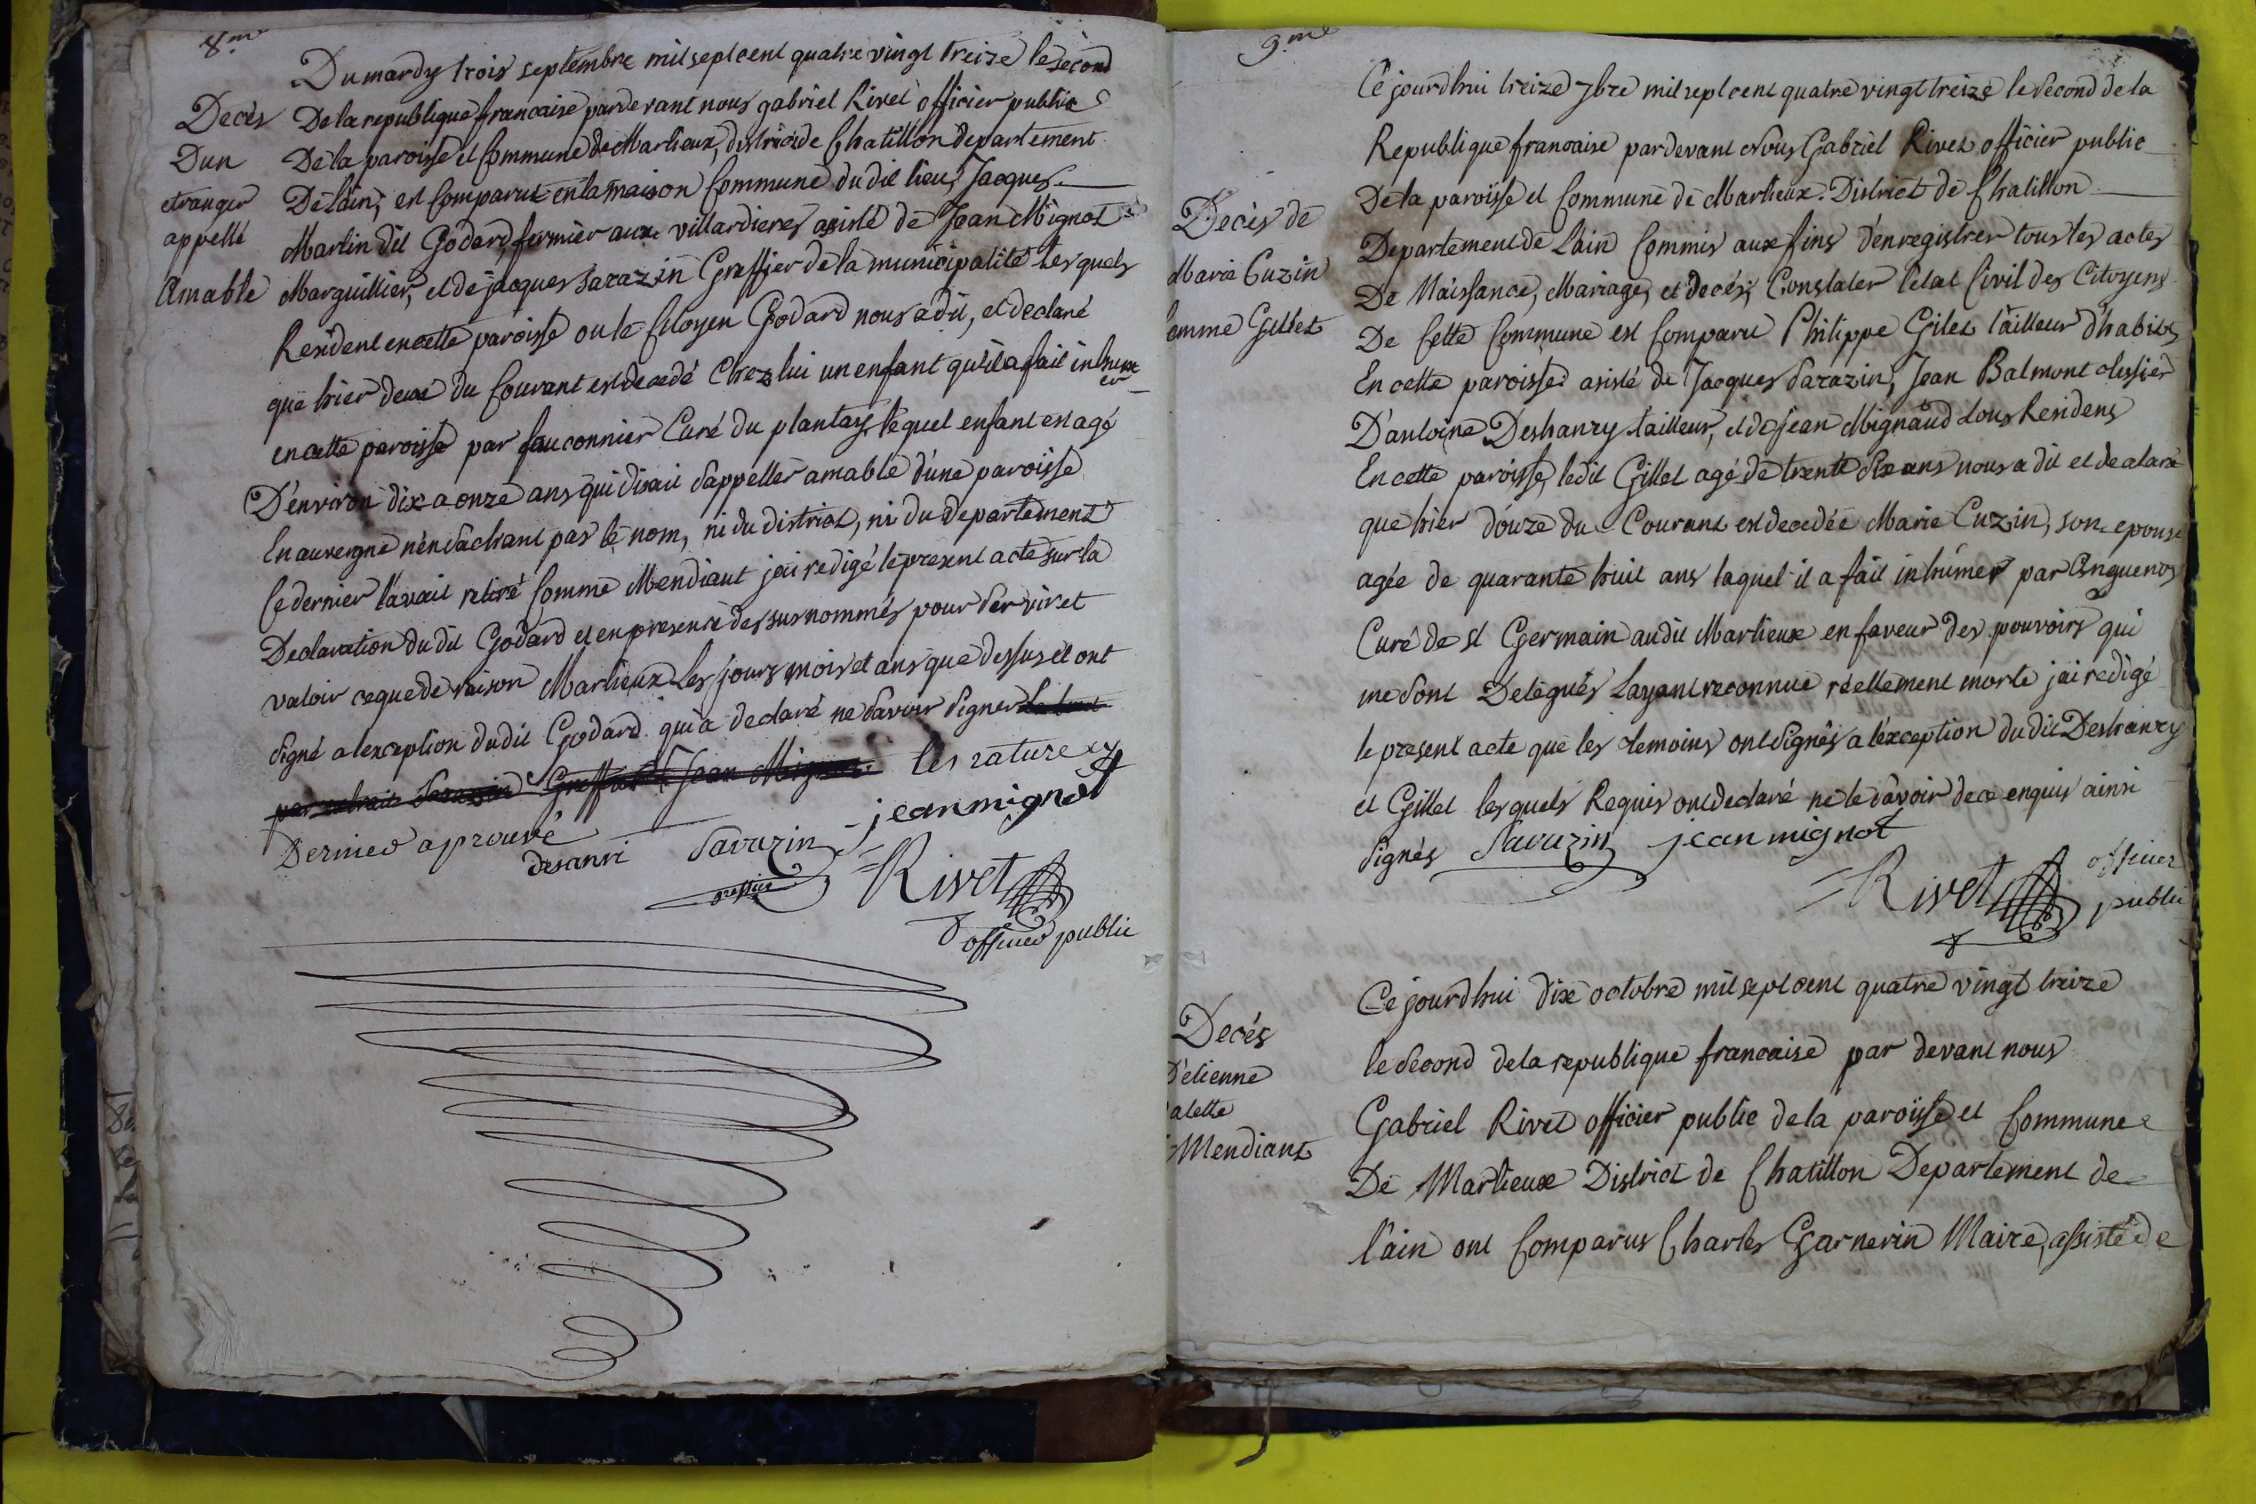 8.me
Du mardy trois septembre mil sept cent quatre vingt treize le second
Decès
De la republique francaise pardevant nous gabriel Rivet officier public
Dun
De la paroisse et Commune de Marlieux, district de Chatillon departement
etranger
De lain, est Comparut en la maison Commune du dit lieu, Jacques
appellé
Martin dit Godard, fermier aux villardieres asisté de Jean Mignot
Amable
Marguillier, et de jacques Sarazin Greffier de la municipalité lesquels
Resident en cette paroisse ou le Citoyen Godard nous a dit, et declaré
que hier deux du Courant est decedé Chez lui un enfant qu'il a fait inhumer
en cette paroisse par fauconnier Curé du plantay, lequel enfant est agé
D'environ dix a onze ans qui disait s'appeller amable d'une paroisse
En auvergne n'en sachant pas le nom, ni du district, ni du departement
Ce dernier l'avait retiré Comme Mendiant jai redigé le present acte sur la
Declaration du dit Godard et en presence des susnommés pour servir et
valoir ce que de raison Marlieux les jours mois et ans que dessus et ont
signé a lexception du dit Godard qui a declaré ne savoir signer
par extrait Sarazin Greffier Jean Mignot les rature cy
Dernier aprouvé
desanvi Sarazin jean mignot
greffier Rivet
officier public
9.me
Ce jourdhui treize 7bre mil sept cent quatre vingt treize le second de la
Republique francaise pardevant Nous Gabriel Rivet officier public
De la paroisse et Commune de Marlieux. District de Chatillon
Decès de
Departement de Lain Commis aux fins d'enregistrer tous les actes
Marie Cuzin
De Naissance, Mariage, et decès, Constater l'etat Civil des Citoyens
femme Gillet
De Cette Commune est Comparu Philippe Gilet tailleur d'habits
En cette paroisse asisté de Jacques Sarazin, Jean Balmont tissier
D'antoine Deshanry tailleur, et de jean Mignaud tous Residens
En cette paroisse, ledit Gillet agé de trente six ans nous a dit et declaré
que hier douze du Courant est decedée Marie Cuzin, son epouse
agée de quarante huit ans laquel il a fait inhumer par Anguenos
Curé de st Germain audit Marlieux en faveur des pouvoirs qui
me sont Delegués Layant reconnue réellement morte jai redigé
le present acte que les temoins ont signés a l'exception du dit Deshanry
et Gillet lesquels Requis ont declaré ne le savoir de ce enquis ainsi
signés Sarazin jean mignot
Rivet officier
public
Ce jourdhui dix octobre mil sept cent quatre vingt treize
Decés
le second de la republique francaise par devant nous
D'etienne
alette
Gabriel Rivet officier public de la paroisse et Commune
Mendiant
De Marlieux District de Chatillon Departement de
l'ain ont Comparus Charles Garnerin Maire, assisté de